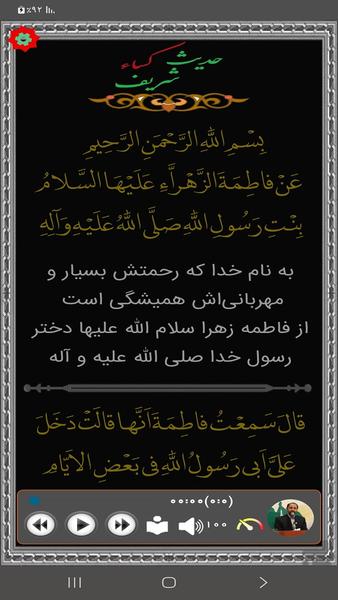 ٪۹۲
حدیث کساء
شریف
بِسْمِ اللهِ الرَّحْمنِ الرَّحیمِ
عَنْ فاطِمَةَ الزَّهْرآءِ عَلَیْهَا السَّلامُ
بِنْتِ رَسُولِ اللهِ صَلَّی اللهُ عَلَیْهِ وَآلِهِ
به نام خدا که رحمتش بسیار و
مهربانی‌اش همیشگی است
از فاطمه زهرا سلام الله علیها دختر
رسول خدا صلی الله علیه و آله
قالَ سَمِعْتُ فاطِمَةَ اَنَّها قالَتْ دَخَلَ
عَلَیَّ اَبی رَسُولُ اللهِ فی بَعْضِ الاَیّامِ
۰۰:۰۰(۰:۰)
۱۰۰